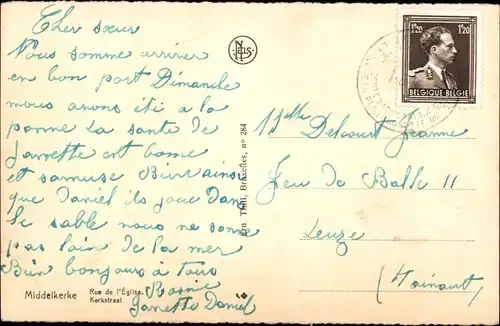 Cher sœur
Vous somme arriver
en bon port Dimanche
nous avons iti a la
panne La sante de
Janette est bonne
et samuse Bien ainsi
que Daniel ils joue dans
le sable nous ne somme
pas loin de la mer
Bien bonjours à tous
Rosine
Janette Daniel
Middelkerke
Rue de l'Église.
Kerkstraat
NELS
Ern. Thill, Bruxelles, n° 284
1F20 1F20
BELGIQUE·BELGIE
Mlle Delcourt Jeanne
Jeu de Balle 11
Leuze
(Hainaut)